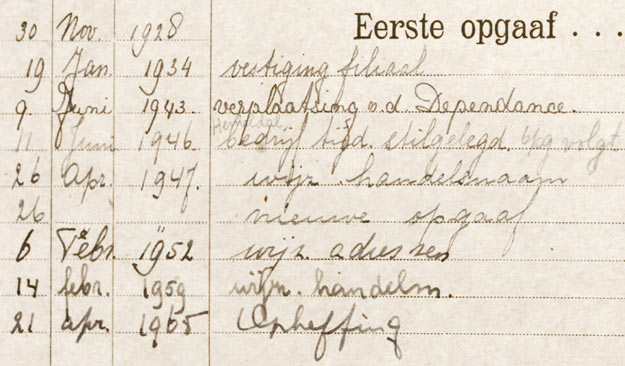 30 Nov. 1928 Eerste opgaaf . . .
19 Jan. 1934 vestiging filiaal
9 Juni 1943. verplaatsing v.d. Dependance.
11 Juni 1946. bedrijf tijd. stilgelegd. opg volgt
26 Apr. 1947. wijz. handelsnaam
26 nieuwe opgaaf
6 Febr. 1952 wijz. adressen
14 febr. 1959 wijz. handelsn.
21 apr. 1965 Opheffing